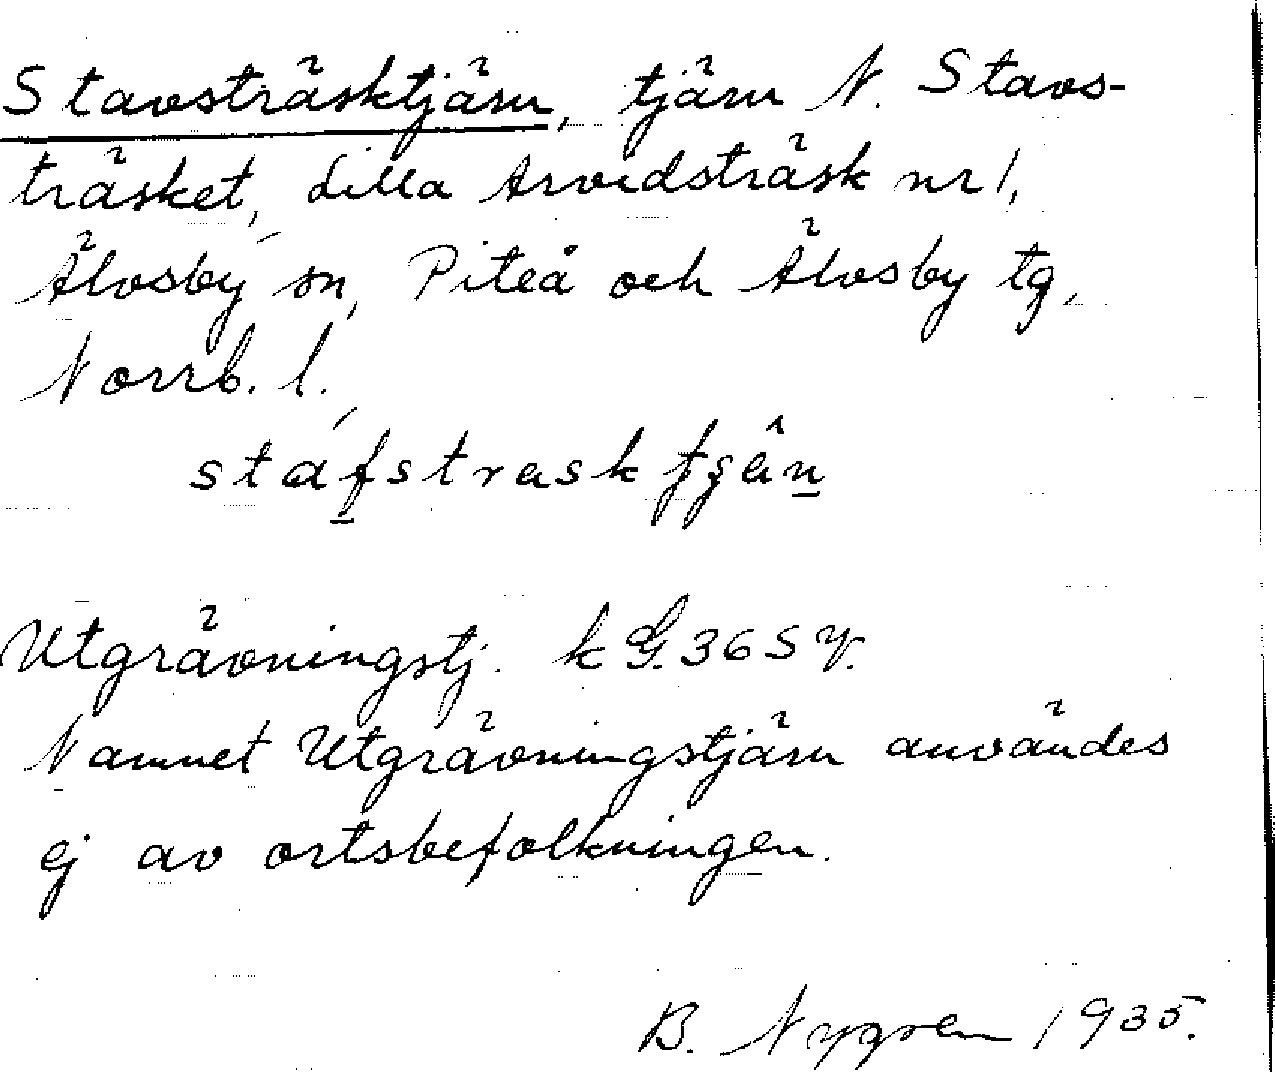 Stavsträsktjärn, tjärn N. Stavs-
träsket, Lilla Arvidsträsk nr 1,
Älvsby sn, Piteå och Älvsby tg,
Norrb. l.
stáfstrask tjän
Utgrävningstj. k G. 36 S y.
Namnet Utgrävningstjärn användes
ej av ortsbefolkningen.
B. Nygren 1935.